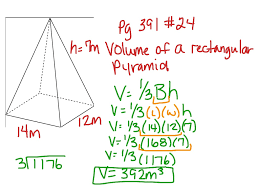 Pg 391 #24
h=7m
Volume of a rectangular
Pyramid
V= 1/3 Bh
V= 1/3 (L)(w)h
V= 1/3 (14)(12)(7)
V= 1/3 (168)(7)
V= 1/3 (1176)
V= 392m³
12m
14m
3⟌1176